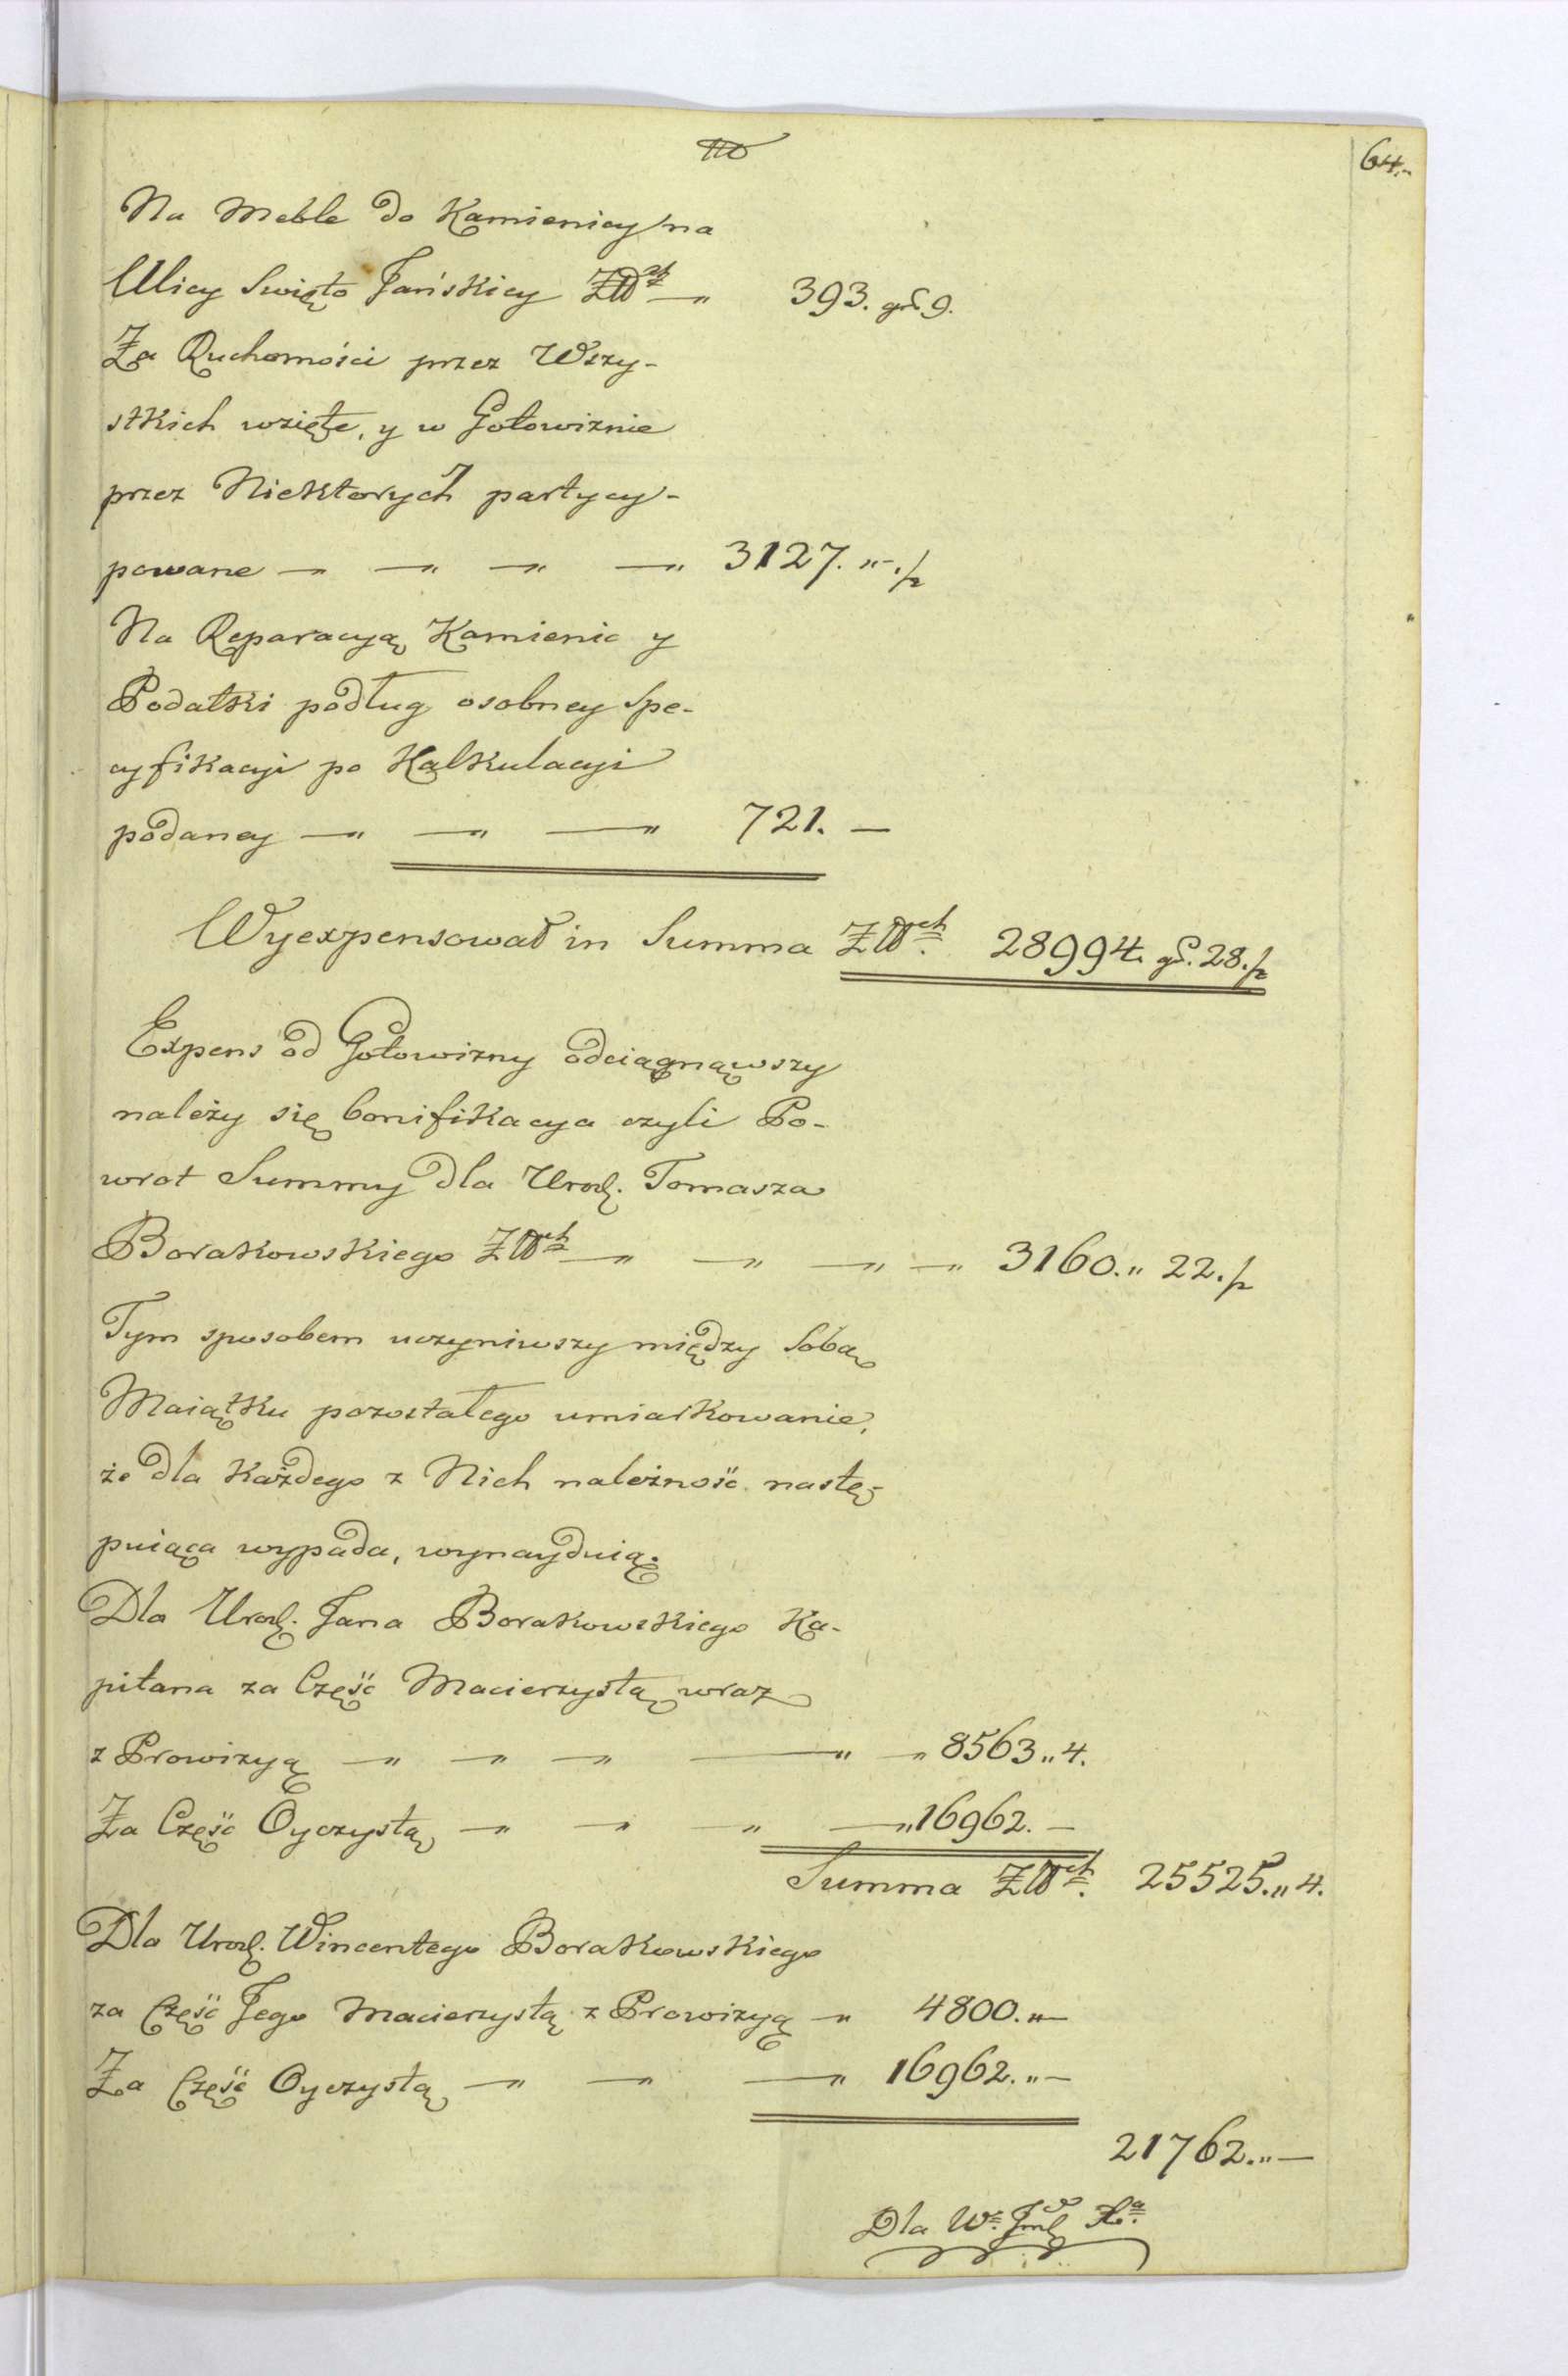 64.
Na Meble do Kamienicy na
Ulicy Swięto Jańskiey Złłch — 393. gr. 9.
Za Ruchomości przez Wszy-
stkich wzięte, y w Gotowiznie
przez Niektorych partycy-
powane — — — — 3127. „ - ./2
Na Reparacyą Kamienic y
Podatki podług osobney Spe-
cyfikacyi po Kalkulacyi
podaney — — — 721. —
Wyexpensował in Summa Złłch. 28994. gr. 28. /2
Expens od Gotowizny odciągnąwszy
należy się bonifikacya czyli Po-
wrot Summy dla Urodz. Tomasza
Borakowskiego Złłch — — — — 3160. „ 22. /2
Tym sposobem uczyniwszy między Sobą
Maiątku pozostałego umiarkowanie,
że dla Każdego z Nich należność nastę-
puiąca wypada, wynayduią.
Dla Urodz. Jana Borakowskiego Ka-
pitana za Część Macierzystą wraz
z Prowizyą — — — — — 8563 „ 4.
Za Część Oyczystą — — — — 16962. —
Summa Złłch. 25525. „ 4.
Dla Urodz. Wincentego Borakowskiego
za Część Jego Macierzystą z Prowizyą — 4800. „ —
Za Część Oyczystą — — — 16962. „ —
21762. „ —
Dla